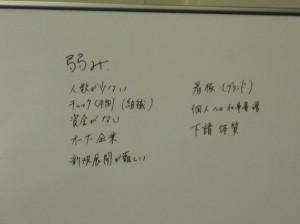 弱み
人数が少ない
チェック(体制)(組織)
資金がない
オーナー企業
新規展開が難しい
看板(ブランド)
個人への仕事量増
下請体質